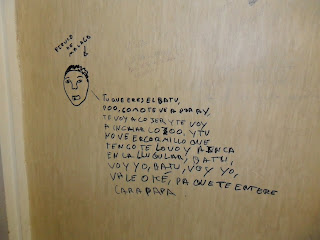 PERUCO
DE
MALAGO
TU QUE ERES EL BATU,
POO, COMO TE VEA POR AY
TE VOY A COJER Y TE VOY
A INCHAR LO JOO, Y TU
NO VE ER COLMILLO QUE
TENGO TE LO VO Y A INCA
EN LA LLUGULAR, BATU,
VOY YO, BATU, VOY YO,
VALE O KE, PA QUE TE ENTERE
CARAPAPA